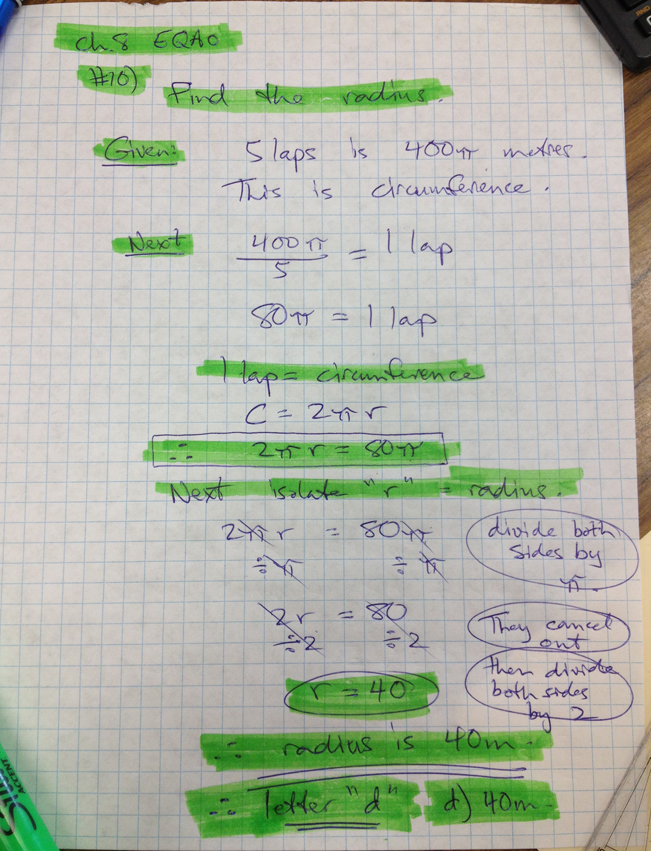 ch.8 EQAO
#10) Find the radius.
Given: 5 laps is 400π metres.
This is circumference.
Next 400π / 5 = 1 lap
80π = 1 lap
1 lap = circumference
C = 2πr
∴ 2πr = 80π
Next isolate "r" = radius.
2πr = 80π
÷π ÷π
divide both
sides by
π.
2r = 80
÷2 ÷2
They cancel
out
then divide
both sides
by 2
r = 40
∴ radius is 40m.
∴ letter "d" d) 40m.
ACCENT